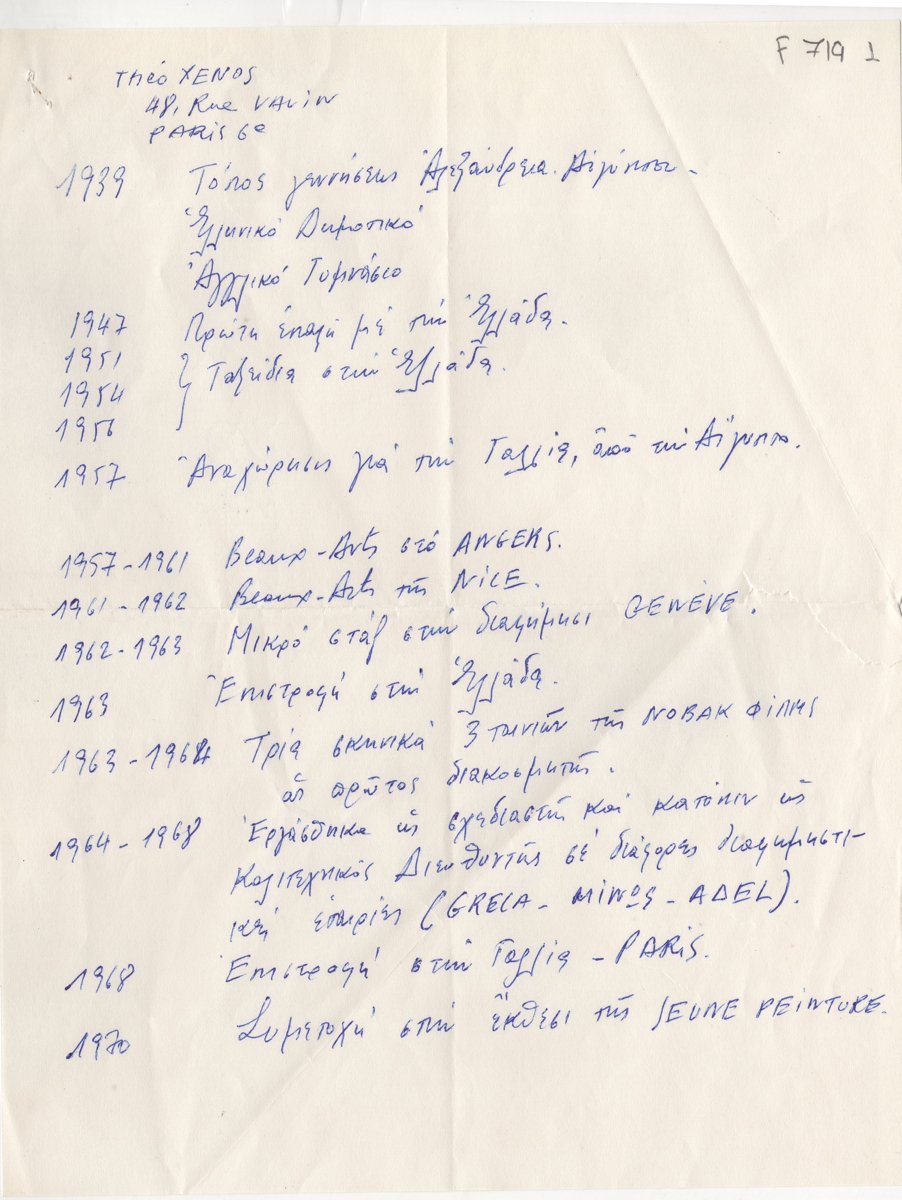 F 719 1
Théo XENOS
48, Rue VAVIN
PARIS 6e
1939 Τόπος γεννήσεως Ἀλεξάνδρεια. Αἰγύπτου -
Ἑλληνικό Δημοτικό
Ἀγγλικό Γυμνάσιο
1947 Πρώτη ἐπαφή μέ τήν Ἑλλάδα.
1951 } Ταξείδια στήν Ἑλλάδα.
1954
1956
1957 Ἀναχώρησις γιά τήν Γαλλία, ἀπό τήν Αἴγυπτο.
1957-1961 Beaux-Arts στό ANGERS.
1961-1962 Beaux-Arts τῆς NICE.
1962-1963 Μικρό στάζ στήν διαφήμησι GENÈVE.
1963 Ἐπιστροφή στήν Ἑλλάδα.
1963-1964 Τρία σκηνικά 3 ταινιῶν τῆς ΝΟΒΑΚ ΦΙΛΜΣ
ὡς πρῶτος διακοσμητής.
1964-1968 Ἐργάσθηκα ὡς σχεδιαστής καί κατόπιν ὡς
Καλιτεχνικός Διευθυντής σέ διάφορες διαφημηστι-
κές ἑταιρίες (GRECA - ΜΙΝΩΣ - ADEL).
1968 Ἐπιστροφή στήν Γαλλία - PARIS.
1970 Συμετοχή στήν ἔκθεσι τῆς JEUNE PEINTURE.